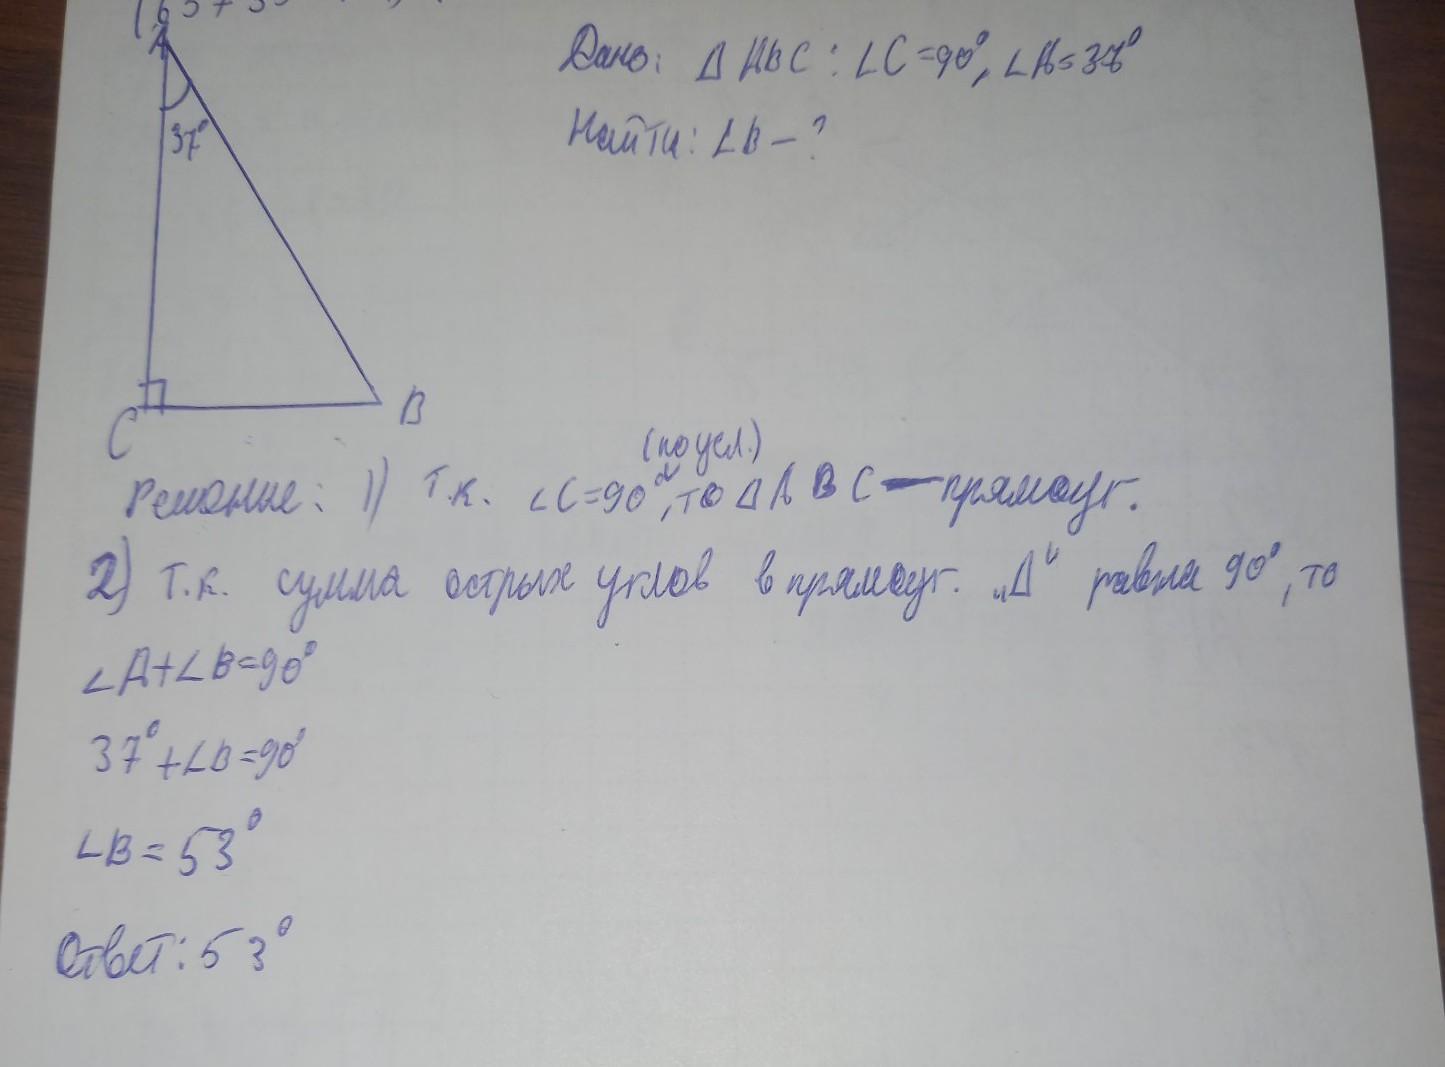 A
37°
C
B
Дано: Δ ABC : ∠C=90°, ∠A=37°
Найти: ∠B – ?
(по усл.)
Решение: 1) Т.к. ∠C=90°, то Δ A B C — прямоуг.
2) Т.к. сумма острых углов в прямоуг. „Δ“ равна 90°, то
∠A+∠B=90°
37°+∠B=90°
∠B=53°
Ответ: 53°